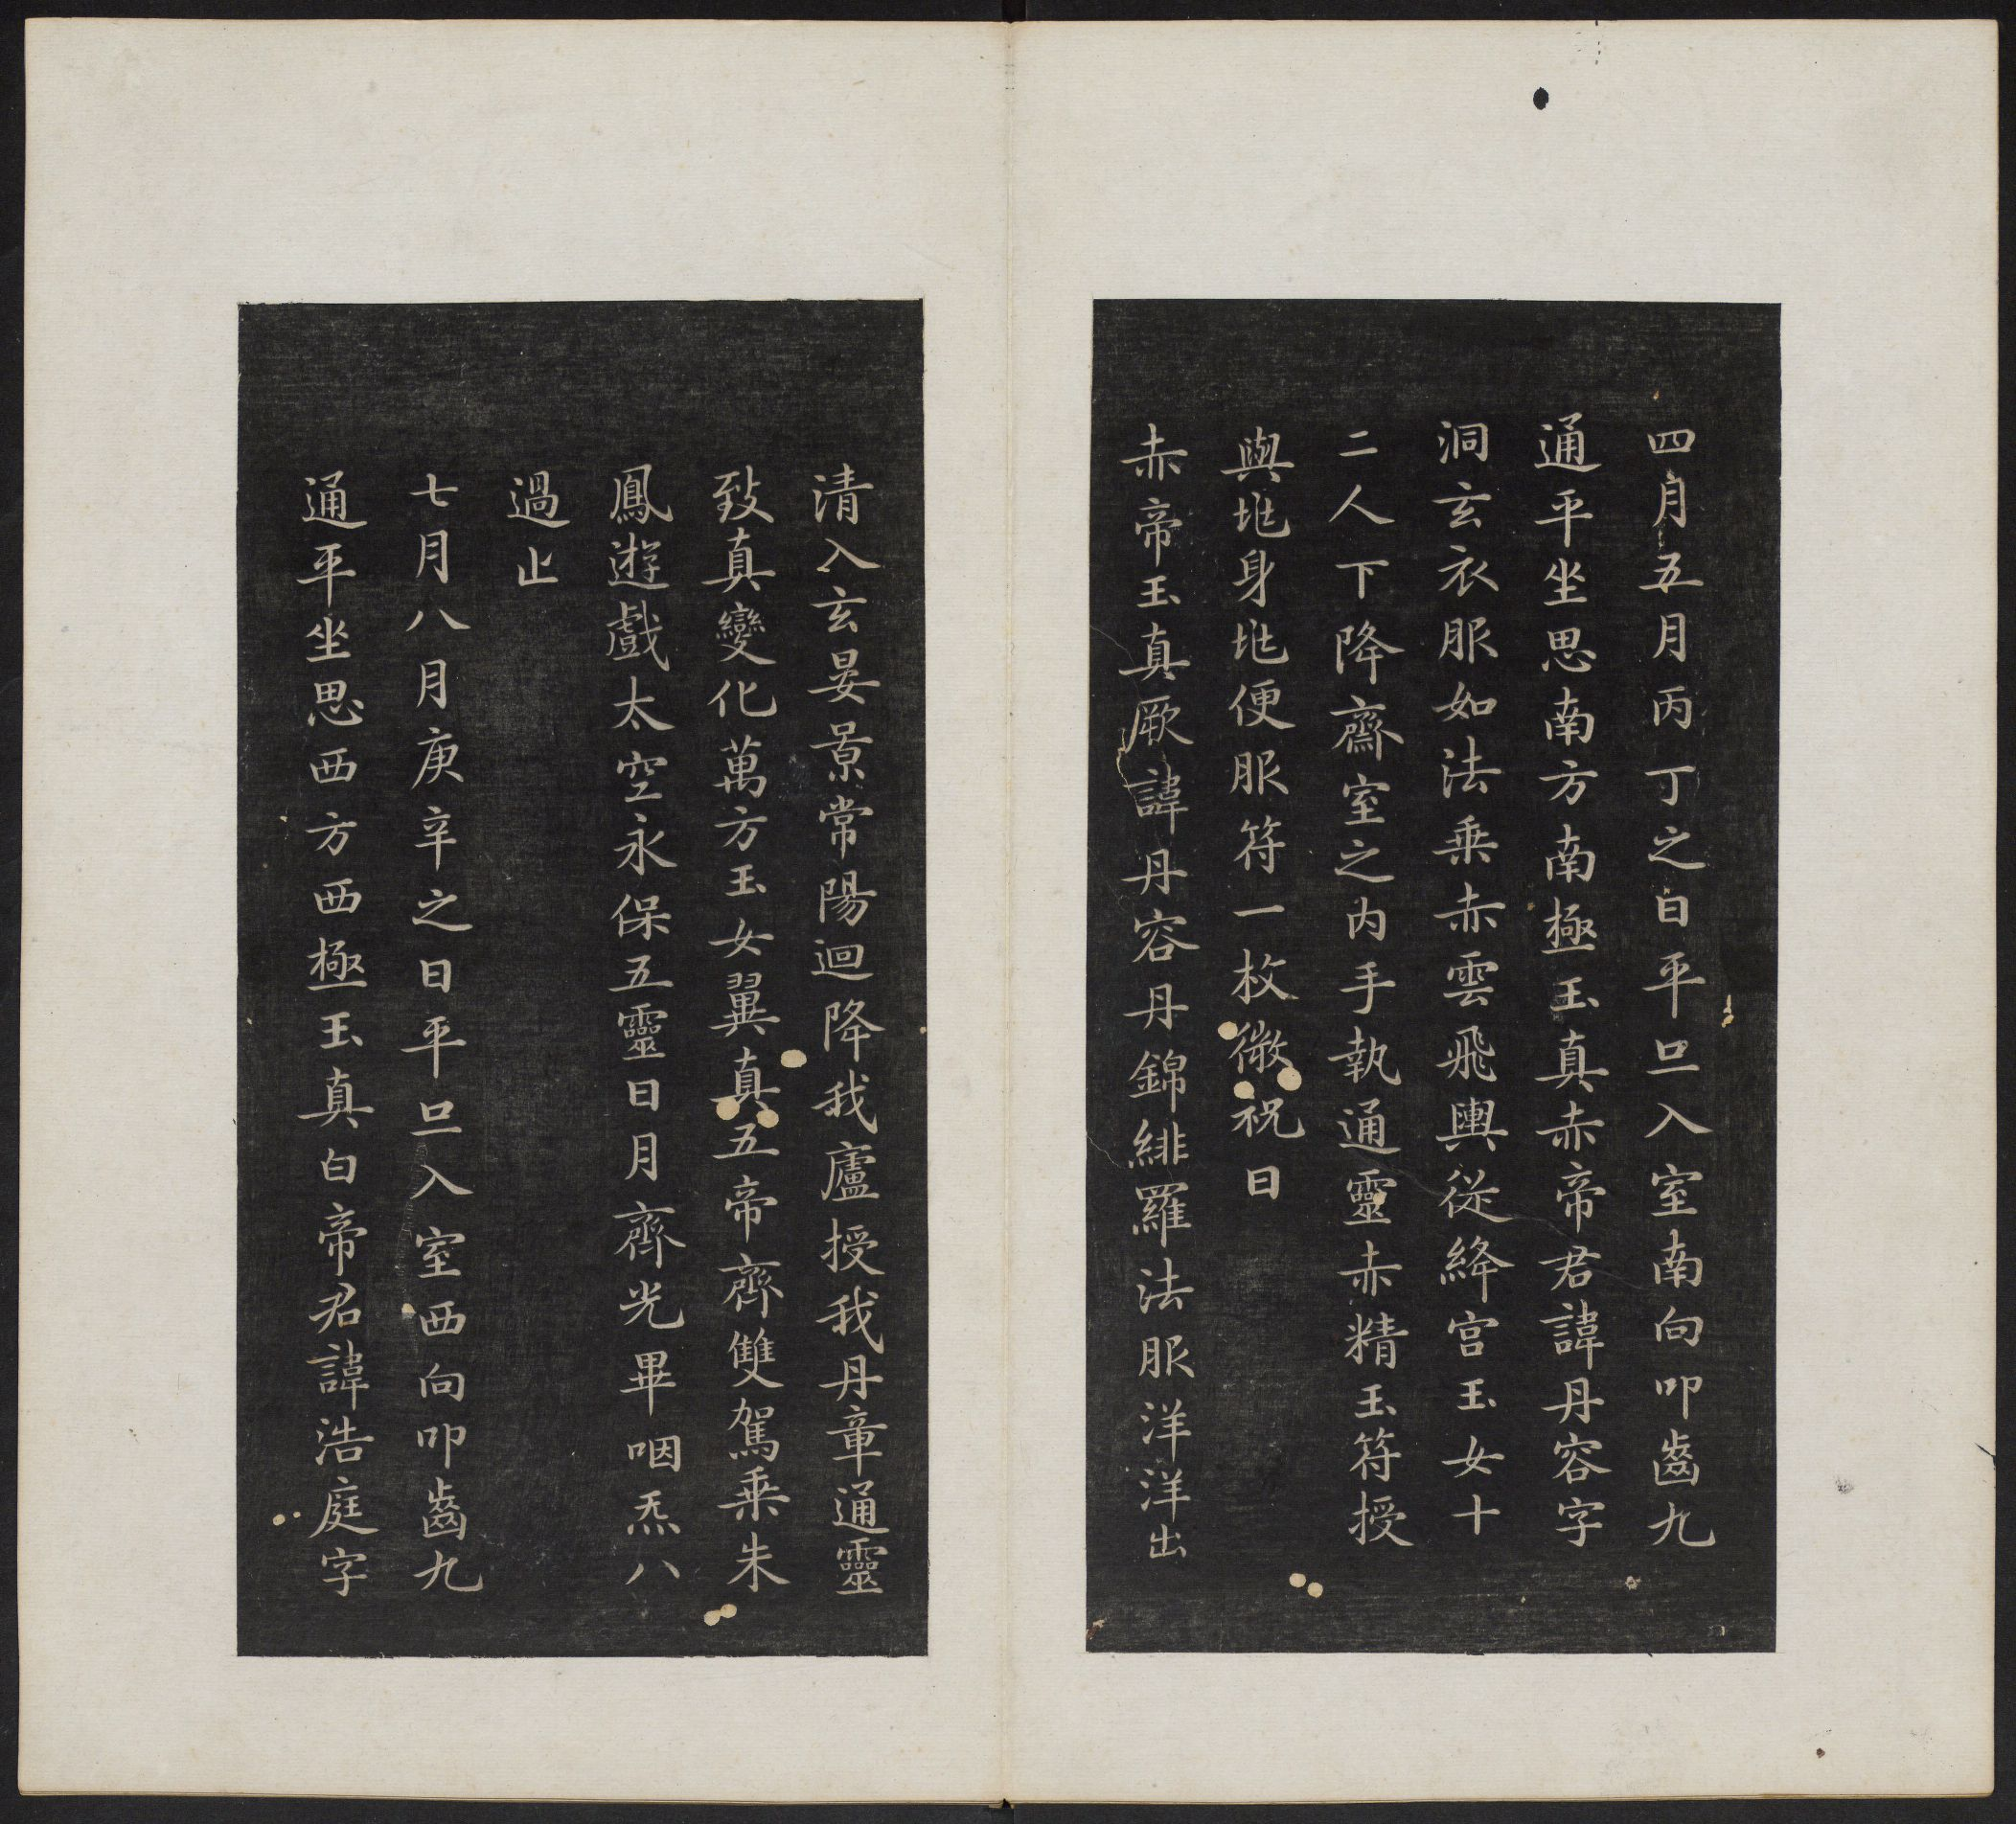 四月五月丙丁之日平旦入室南向叩齒九
通平坐思南方南極玉真赤帝君諱丹容字
洞玄衣服如法乘赤雲飛輿從絳宮玉女十
二人下降齋室之内手執通靈赤精玉符授
與兆身兆便服符一枚微祝曰
赤帝玉真厥諱丹容丹錦緋羅法服洋洋出
清入玄晏景常陽迴降我廬授我丹章通靈
致真變化萬方玉女翼真五帝齊雙駕乘朱
鳳遊戲太空永保五靈日月齊光畢咽炁八
過止
七月八月庚辛之日平旦入室西向叩齒九
通平坐思西方西極玉真白帝君諱浩庭字